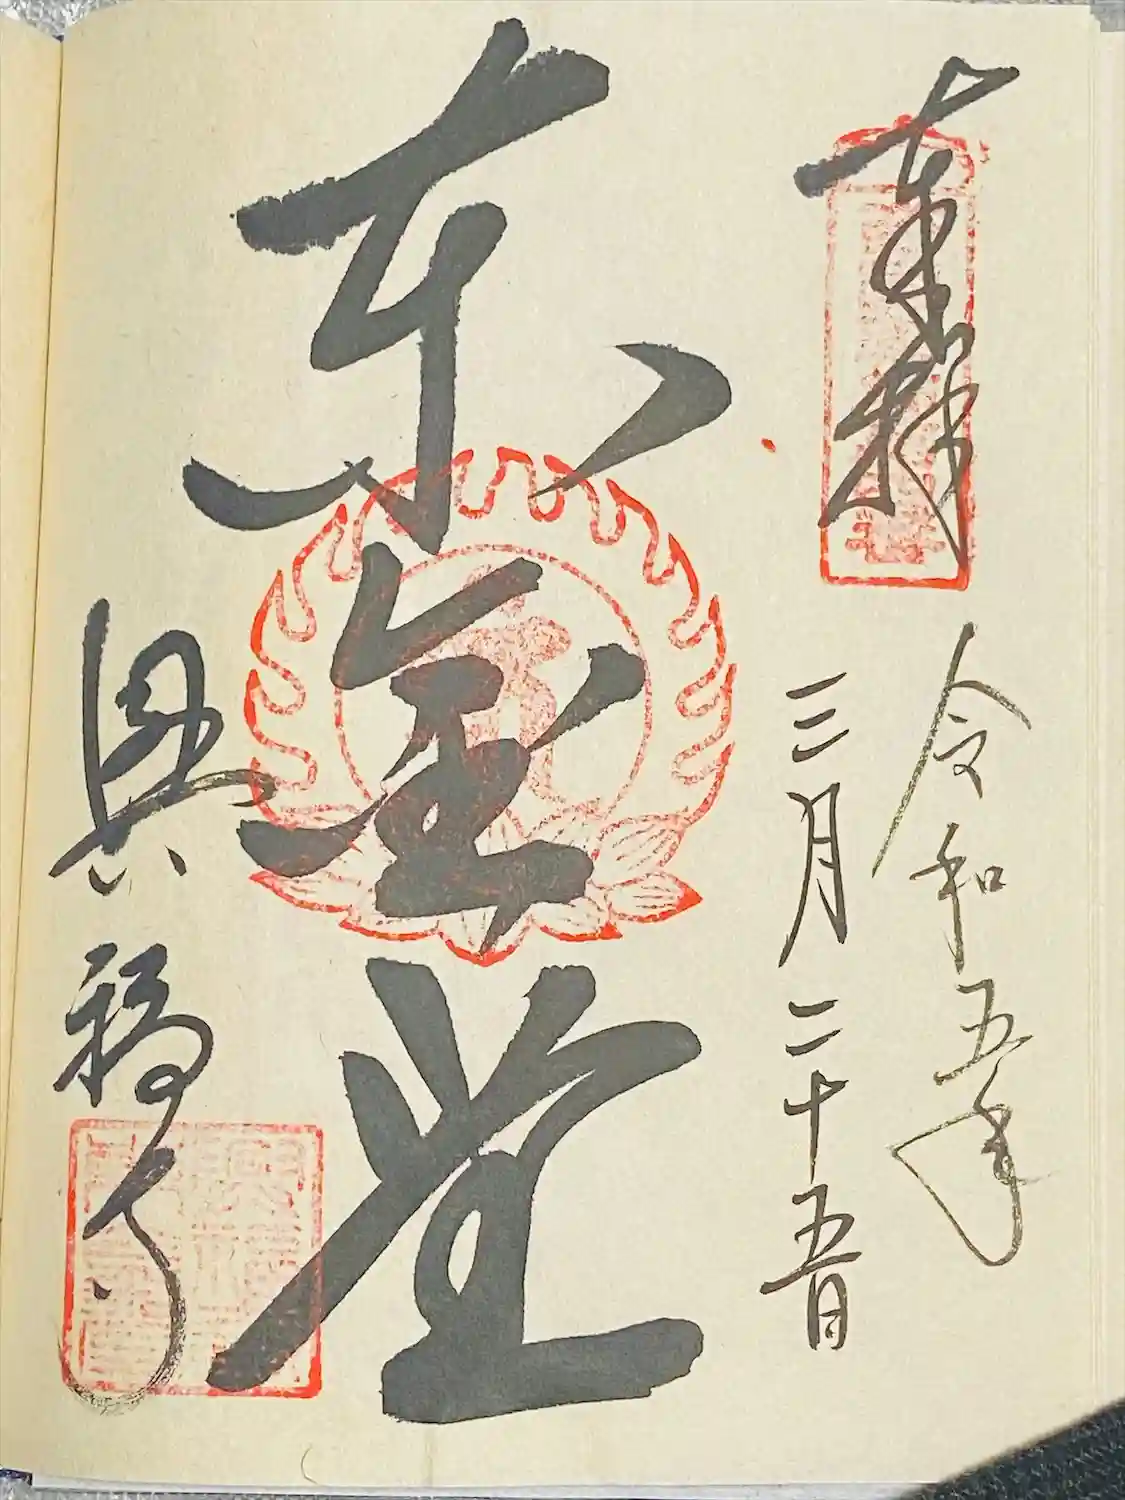 奉拝
令和五年
三月二十五日
東金堂
興福寺